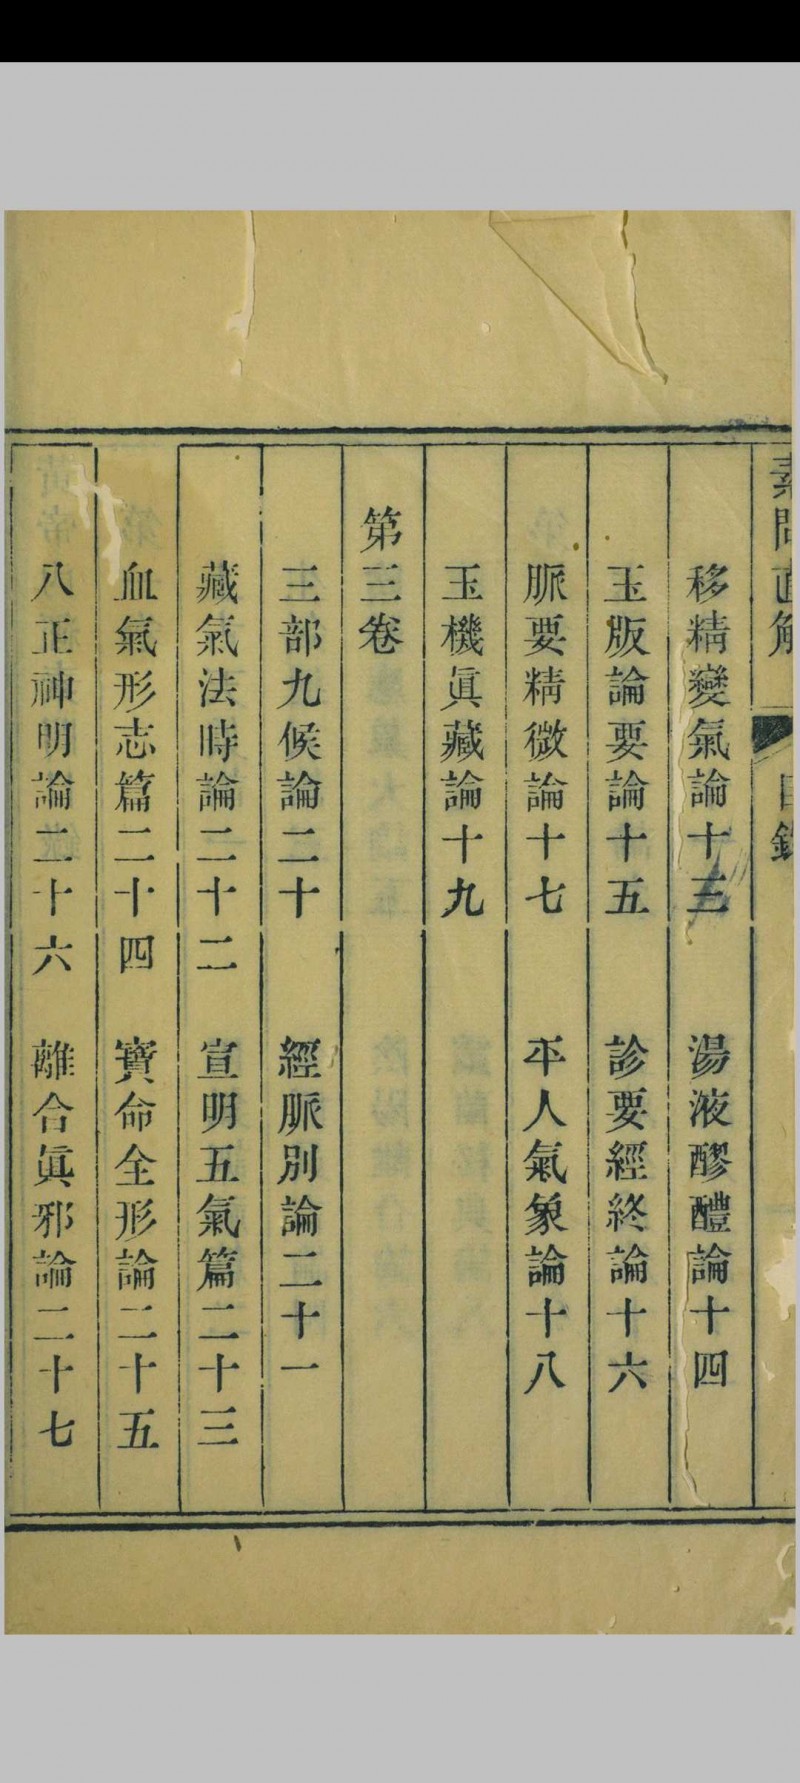 素問直解 目錄
移精變氣論十三 湯液醪醴論十四
玉版論要論十五 診要經終論十六
脈要精微論十七 平人氣象論十八
玉機眞藏論十九
第三卷
三部九候論二十 經脈別論二十一
藏氣法時論二十二 宣明五氣篇二十三
血氣形志篇二十四 寶命全形論二十五
八正神明論二十六 離合眞邪論二十七